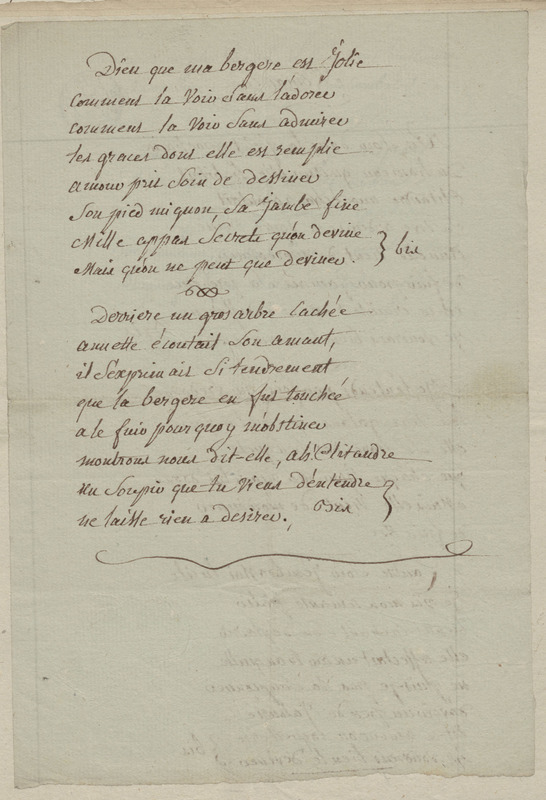 Dieu que ma bergere est Jolie
comment la Voir Sans l'adorer
comment la Voir Sans admirer
les graces dont elle est remplie
amour prit Soin de dessiner
Son pied mignon, Sa jambe fine
Mille appas Secrets qu'on devine
Mais qu'on ne peut que deviner. } bis
Derriere un gros arbre Cachée
annette écoutait Son amant,
il S'exprimait Si tendrement
que la bergere en fut touchée
a le fuir pourquoy m'obstiner
montrons nous dit-elle, ah! Clitandre
un Soupir que tu Viens d'entendre }
ne laisse rien a desirer., Bis